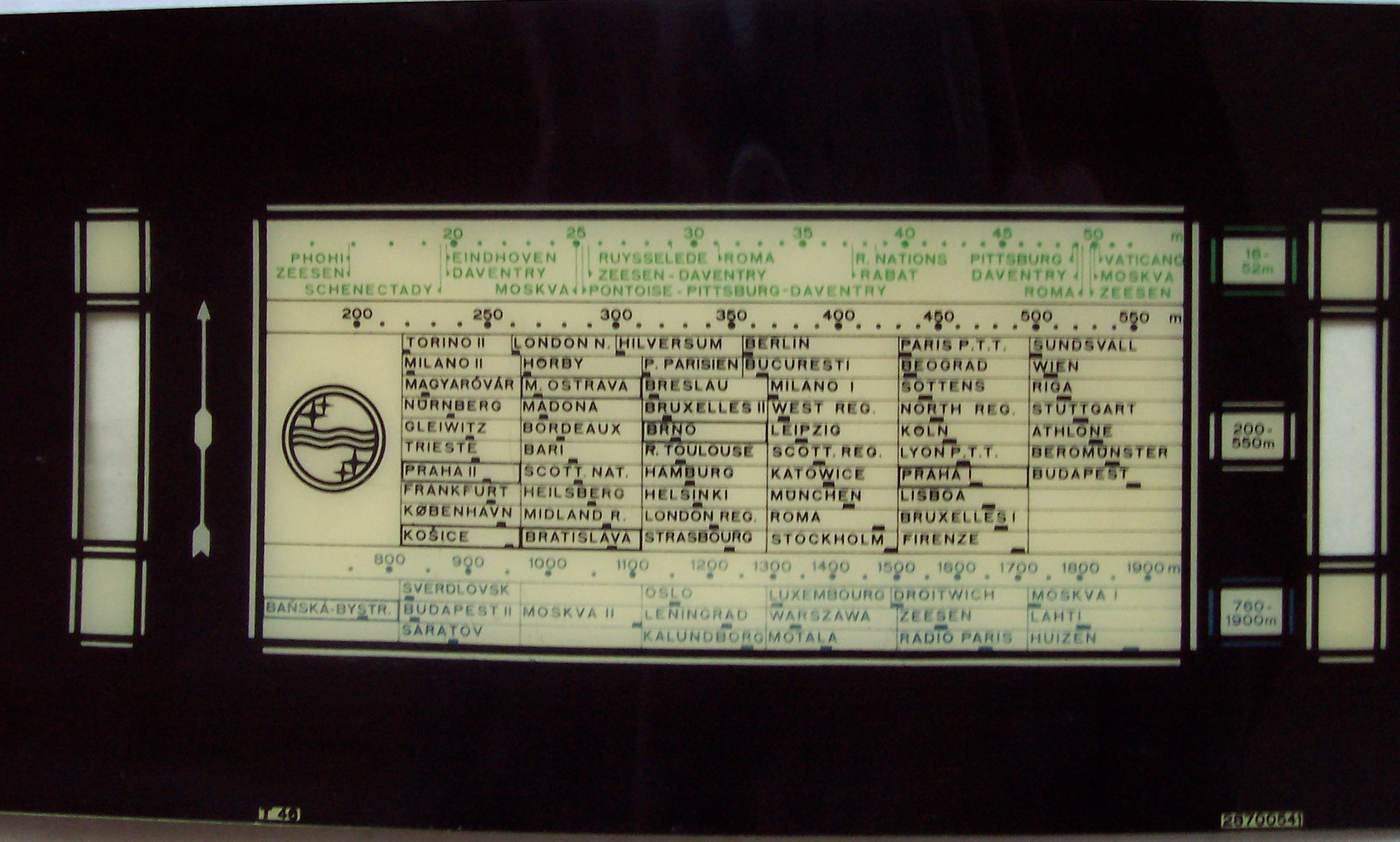 20 25 30 35 40 45 50 m
PHOHI EINDHOVEN RUYSSELEDE ROMA R. NATIONS PITTSBURG VATICANO
ZEESEN DAVENTRY ZEESEN - DAVENTRY RABAT DAVENTRY MOSKVA
SCHENECTADY MOSKVA PONTOISE - PITTSBURG - DAVENTRY ROMA ZEESEN
200 250 300 350 400 450 500 550 m
TORINO II LONDON N. HILVERSUM BERLIN PARIS P.T.T. SUNDSVALL
MILANO II HÖRBY P. PARISIEN BUCURESTI BEOGRAD WIEN
MAGYARÓVÁR M. OSTRAVA BRESLAU MILANO I SOTTENS RIGA
NÜRNBERG MADONA BRUXELLES II WEST REG. NORTH REG. STUTTGART
GLEIWITZ BORDEAUX BRNO LEIPZIG KÖLN ATHLONE
TRIESTE BARI R. TOULOUSE SCOTT. REG. LYON P.T.T. BEROMÜNSTER
PRAHA II SCOTT. NAT. HAMBURG KATOWICE PRAHA I BUDAPEST
FRANKFURT HEILSBERG HELSINKI MÜNCHEN LISBOA
KØBENHAVN MIDLAND R. LONDON REG. ROMA BRUXELLES I
KOŠICE BRATISLAVA STRASBOURG STOCKHOLM FIRENZE
800 900 1000 1100 1200 1300 1400 1500 1600 1700 1800 1900 m
SVERDLOVSK OSLO LUXEMBOURG DROITWICH MOSKVA I
BAŇSKÁ-BYSTR. BUDAPEST II MOSKVA II LENINGRAD WARSZAWA ZEESEN LAHTI
SARATOV KALUNDBORG MOTALA RADIO PARIS HUIZEN
16-
52m
200-
550m
760-
1900m
T 46
28700541